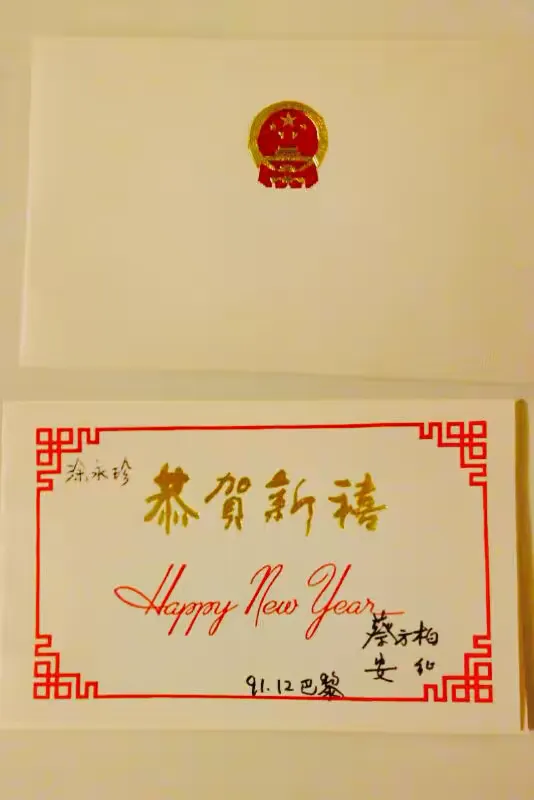 涂永珍
恭賀新禧
Happy New Year
蔡方柏
安 仙
91.12 巴黎